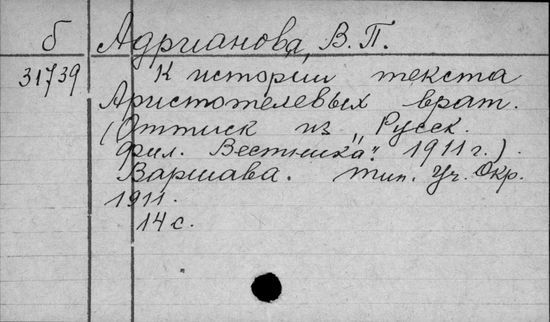 б Адрианова, В.П.
31739 К истории текста
Аристотелевых врат.
(Оттиск из „Русск.
фил. Вестника". 1911 г.)
Варшава. тип. Уч. Окр.
1911.
14 с.